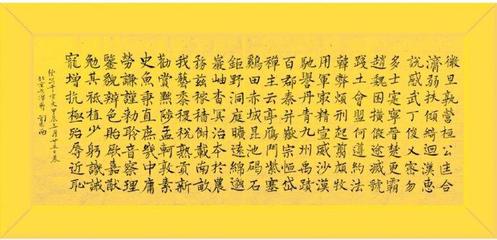 微旦孰營桓公匡合
濟弱扶傾綺迴漢惠
說感武丁俊乂密勿
多士寔寧晉楚更霸
趙魏困橫假途滅虢
踐土會盟何遵約法
韓弊煩刑起翦頗牧
用軍最精宣威沙漠
馳譽丹青九州禹跡
百郡秦并嶽宗恒岱
禪主云亭雁門紫塞
雞田赤城昆池碣石
鉅野洞庭曠遠綿邈
巖岫杳冥治本於農
務茲稼穡俶載南畝
我藝黍稷稅熟貢新
勸賞黜陟孟軻敦素
史魚秉直庶幾中庸
勞謙謹敕聆音察理
鑒貌辨色貽厥嘉猷
勉其祗植省躬譏誡
寵增抗極殆辱近恥